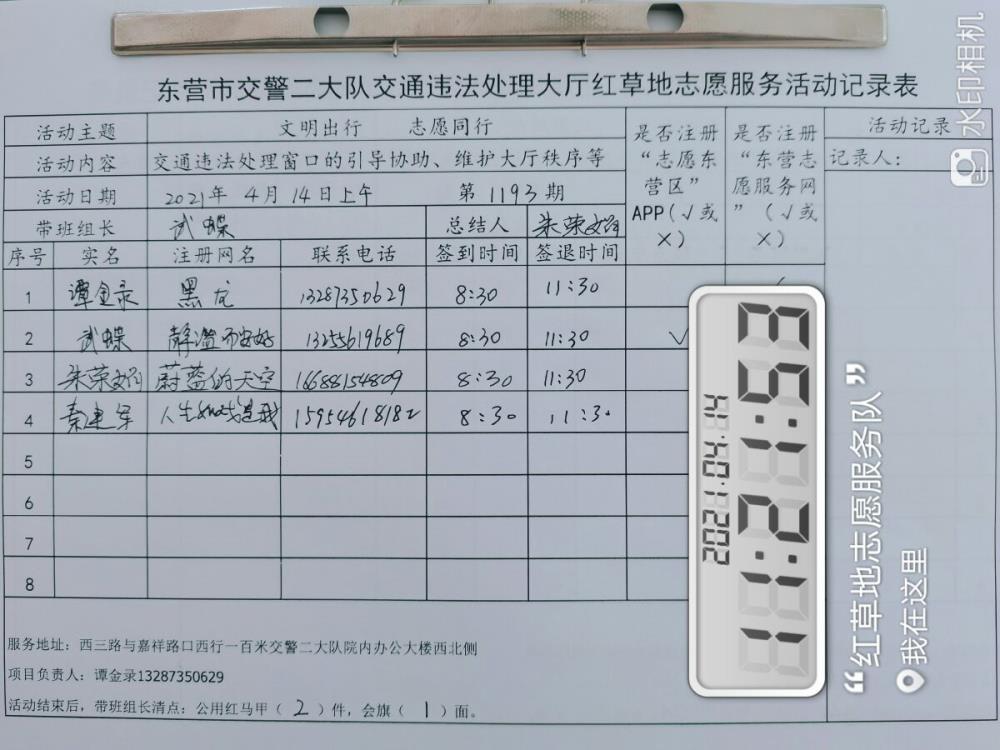 东营市交警二大队交通违法处理大厅红草地志愿服务活动记录表
活动主题 文明出行 志愿同行 是否注册“志愿东营区”APP(√或×) 是否注册“东营志愿服务网”(√或×) 活动记录
活动内容 交通违法处理窗口的引导协助、维护大厅秩序等 记录人：
活动日期 2021年 4月 14日上午 第 1193 期
带班组长 武蝶 总结人 朱荣娟
序号 实名 注册网名 联系电话 签到时间 签退时间
1 谭金录 黑龙 13287350629 8:30 11:30
2 武蝶 静澄而安好 13255619689 8:30 11:30 √
3 朱荣娟 蔚蓝的天空 16688154809 8:30 11:30
4 秦建军 15954618182 8:30 11:30
5
6
7
8
服务地址：西三路与嘉祥路口西行一百米交警二大队院内办公大楼西北侧
项目负责人：谭金录13287350629
活动结束后，带班组长清点：公用红马甲（2）件，会旗（1）面。
11:21:53
2021.04.14
“红草地志愿服务队”
我在这里
水印相机